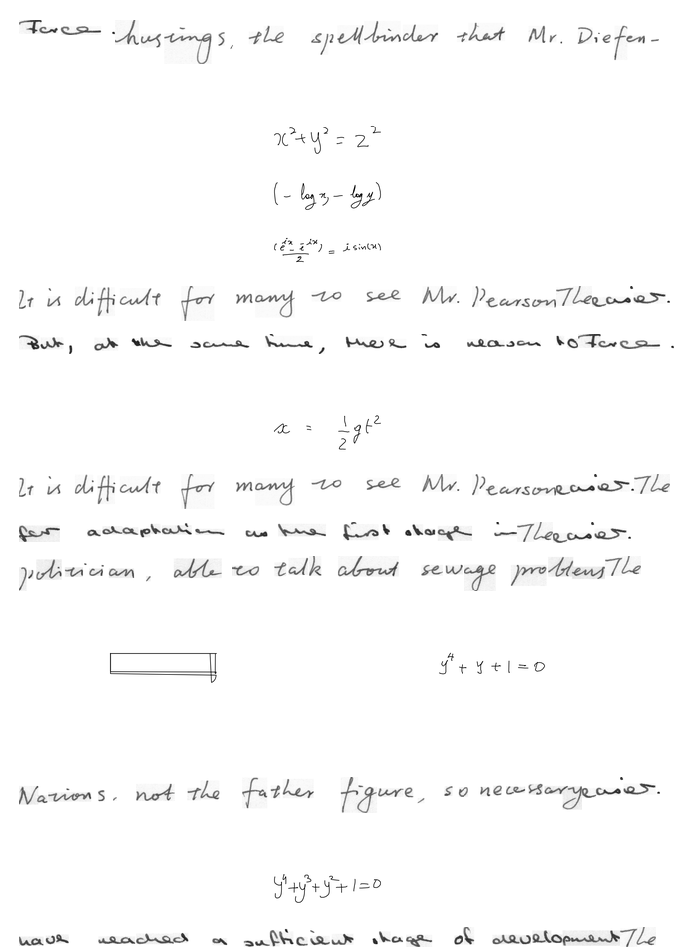 Force . hustings, the spellbinder that Mr. Diefen-
x² + y² = z²
(- log x, - log y)
(e^{ix} - e^{-ix})/2 = i sin(x)
It is difficult for many to see Mr. Pearson The easier.
But, at the same time, there is reason to Force .
x = 1/2 gt²
It is difficult for many to see Mr. Pearson easier. The
for adaptation as the first stage in The easier.
politician, able to talk about sewage problems The
y⁴ + y + 1 = 0
Nations, not the father figure, so necessary easier.
y⁴ + y³ + y² + 1 = 0
have reached a sufficient stage of development The